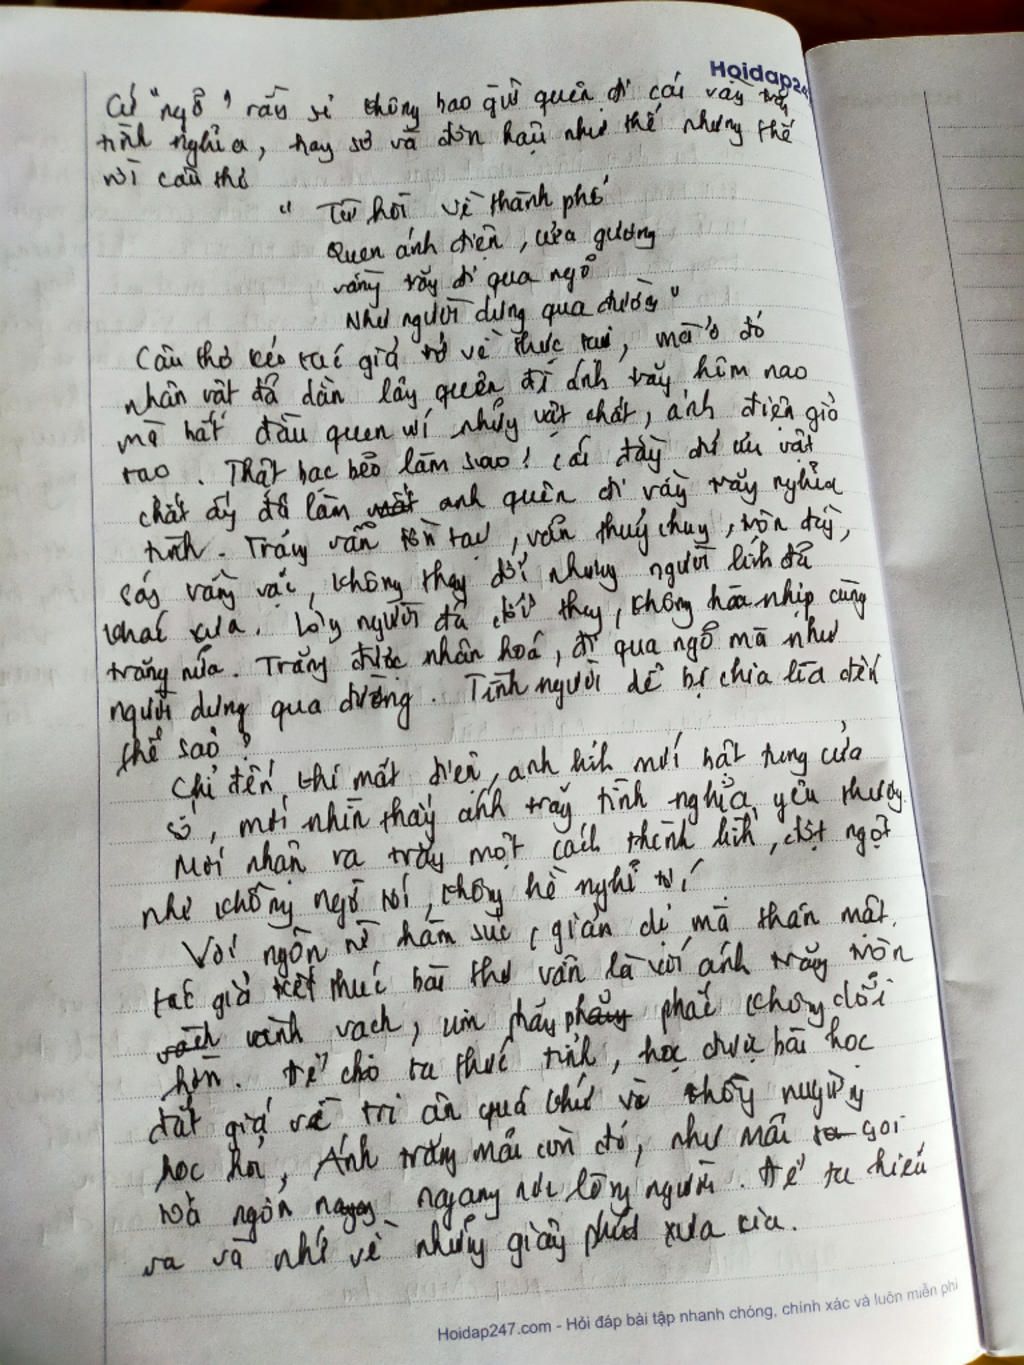 Hoidap24
Cứ "ngỡ" rằng sẽ không bao giờ quên đi cái vầng trăng
tình nghĩa, hay sơ và đôn hậu như thế nhưng thế
rồi câu thơ
" Từ hồi về thành phố
Quen ánh điện, cửa gương
vầng trăng đi qua ngõ
Như người dưng qua đường"
Câu thơ kéo tác giả trở về thực tại, mà ở đó
nhân vật đã dần lãy quên đi ánh trăng hôm nao
mà bắt đầu quen với những vật chất, ánh điện giờ
. Thật bạc bẽo làm sao! Cái đầy
chất ấy đã làm anh quên đi vầng trăng nghĩa
tình. Trăng vẫn tồn tại, vẫn thuỷ chung, tròn đầy,
sáng vằng vặc, không thay đổi nhưng người lính đã
khác xưa. Lòng người đã đổi thay, không hòa nhịp cùng
trăng nữa. Trăng được nhân hoá, đi qua ngõ mà như
người dưng qua đường. Tình người dễ bị chia lìa đến
thế sao?
Chỉ đến khi mất điện, anh lính mới bật tung cửa
sổ, mới nhìn thấy ánh trăng tình nghĩa, yêu thương.
Mới nhận ra trăng một cách thình lình, đột ngột
như không ngờ tới, không hề nghĩ tới
Với ngôn từ hàm súc, giản dị mà thân mật,
tác giả kết thúc bài thơ vẫn là với ánh trăng tròn
vành vạch, im phăng phắc không đổi
hờn. Để cho ta thức tỉnh, học được bài học
đắt giá về tri ân quá khứ về
học hỏi, Ánh trăng mãi còn đó, như mãi soi
rõ ngổn ngang nơi lòng người. Để ta hiểu
ra và nhớ về những giây phút xưa kia.
Hoidap247.com - Hỏi đáp bài tập nhanh chóng, chính xác và luôn miễn phí